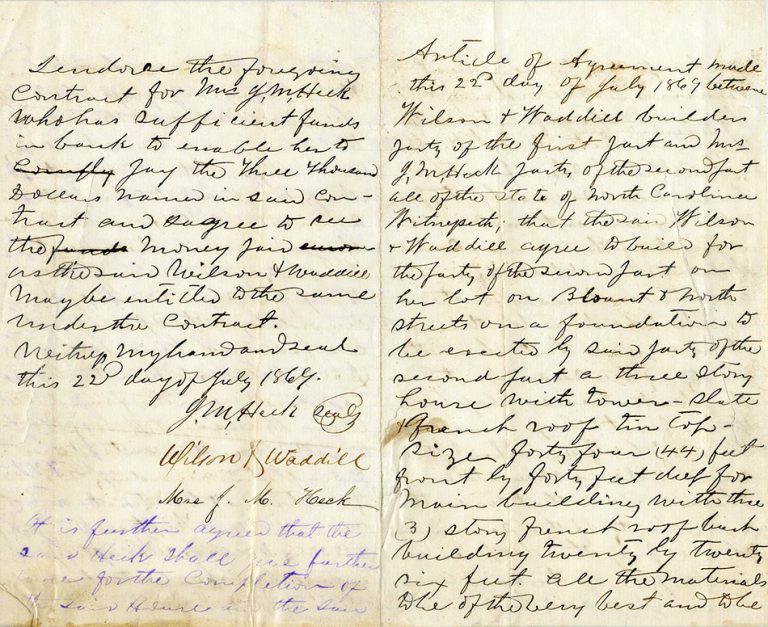 I endorse the foregoing
Contract for Mrs J, M, Heck
who has sufficient funds
in bank to enable her to
Comply pay the Three Thousand
Dollars named in said Con-
tract and I agree to see
the funds money paid
as the said Wilson & Waddill
may be entitled to the same
under the Contract.
Witness my hand and seal
this 22d day of July 1869.
J. M, Heck (seal)
Wilson & Waddill
Mrs J. M. Heck
It is further agreed that the
said Heck shall give further
time for the Completion of
the said House in the said
Article of Agreement made
this 22d day of July 1869 between
Wilson & Waddill builders
party of the first part and Mrs
J, M Heck party of the second part
all of the State of North Carolina
Witnesseth; that the said Wilson
& Waddill agree to build for
the party of the second part on
her lot on Blount & North
streets on a foundation to
be erected by said party of the
second part a three story
house with tower - slate
& French roof tin top -
size forty four (44) feet
front by forty feet deep for
main building with three
(3) story french roof back
building twenty by twenty
six feet. all the materials
to be of the very best and to be